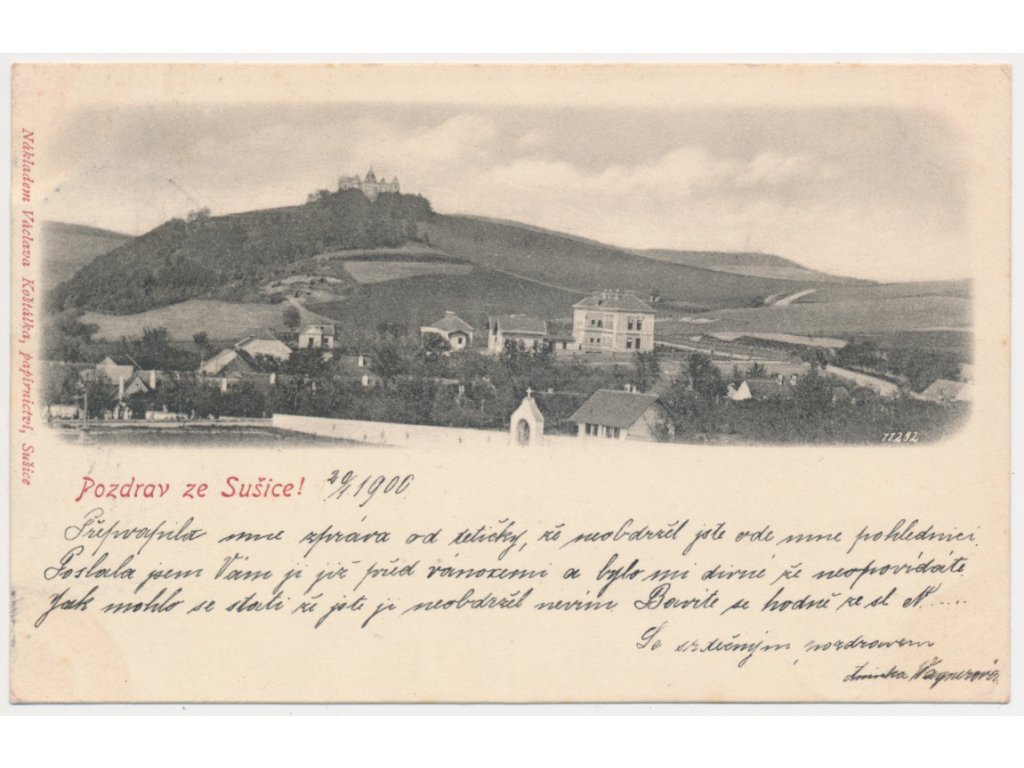 Nákladem Václava Košťálka, papírnictví, Sušice
11282
Pozdrav ze Sušice! 20/1 1900
Přepvapila mne zpráva od tetičky, že neobdržel jste ode mne pohlednici.
Poslala jsem Vám ji již před vánocemi a bylo mi divné že neopovídáte.
Jak mohlo se stati že jste ji neobdržel nevím Bavíte se hodně ze sl. N.....
Se srdečným pozdravem
Wagnerová